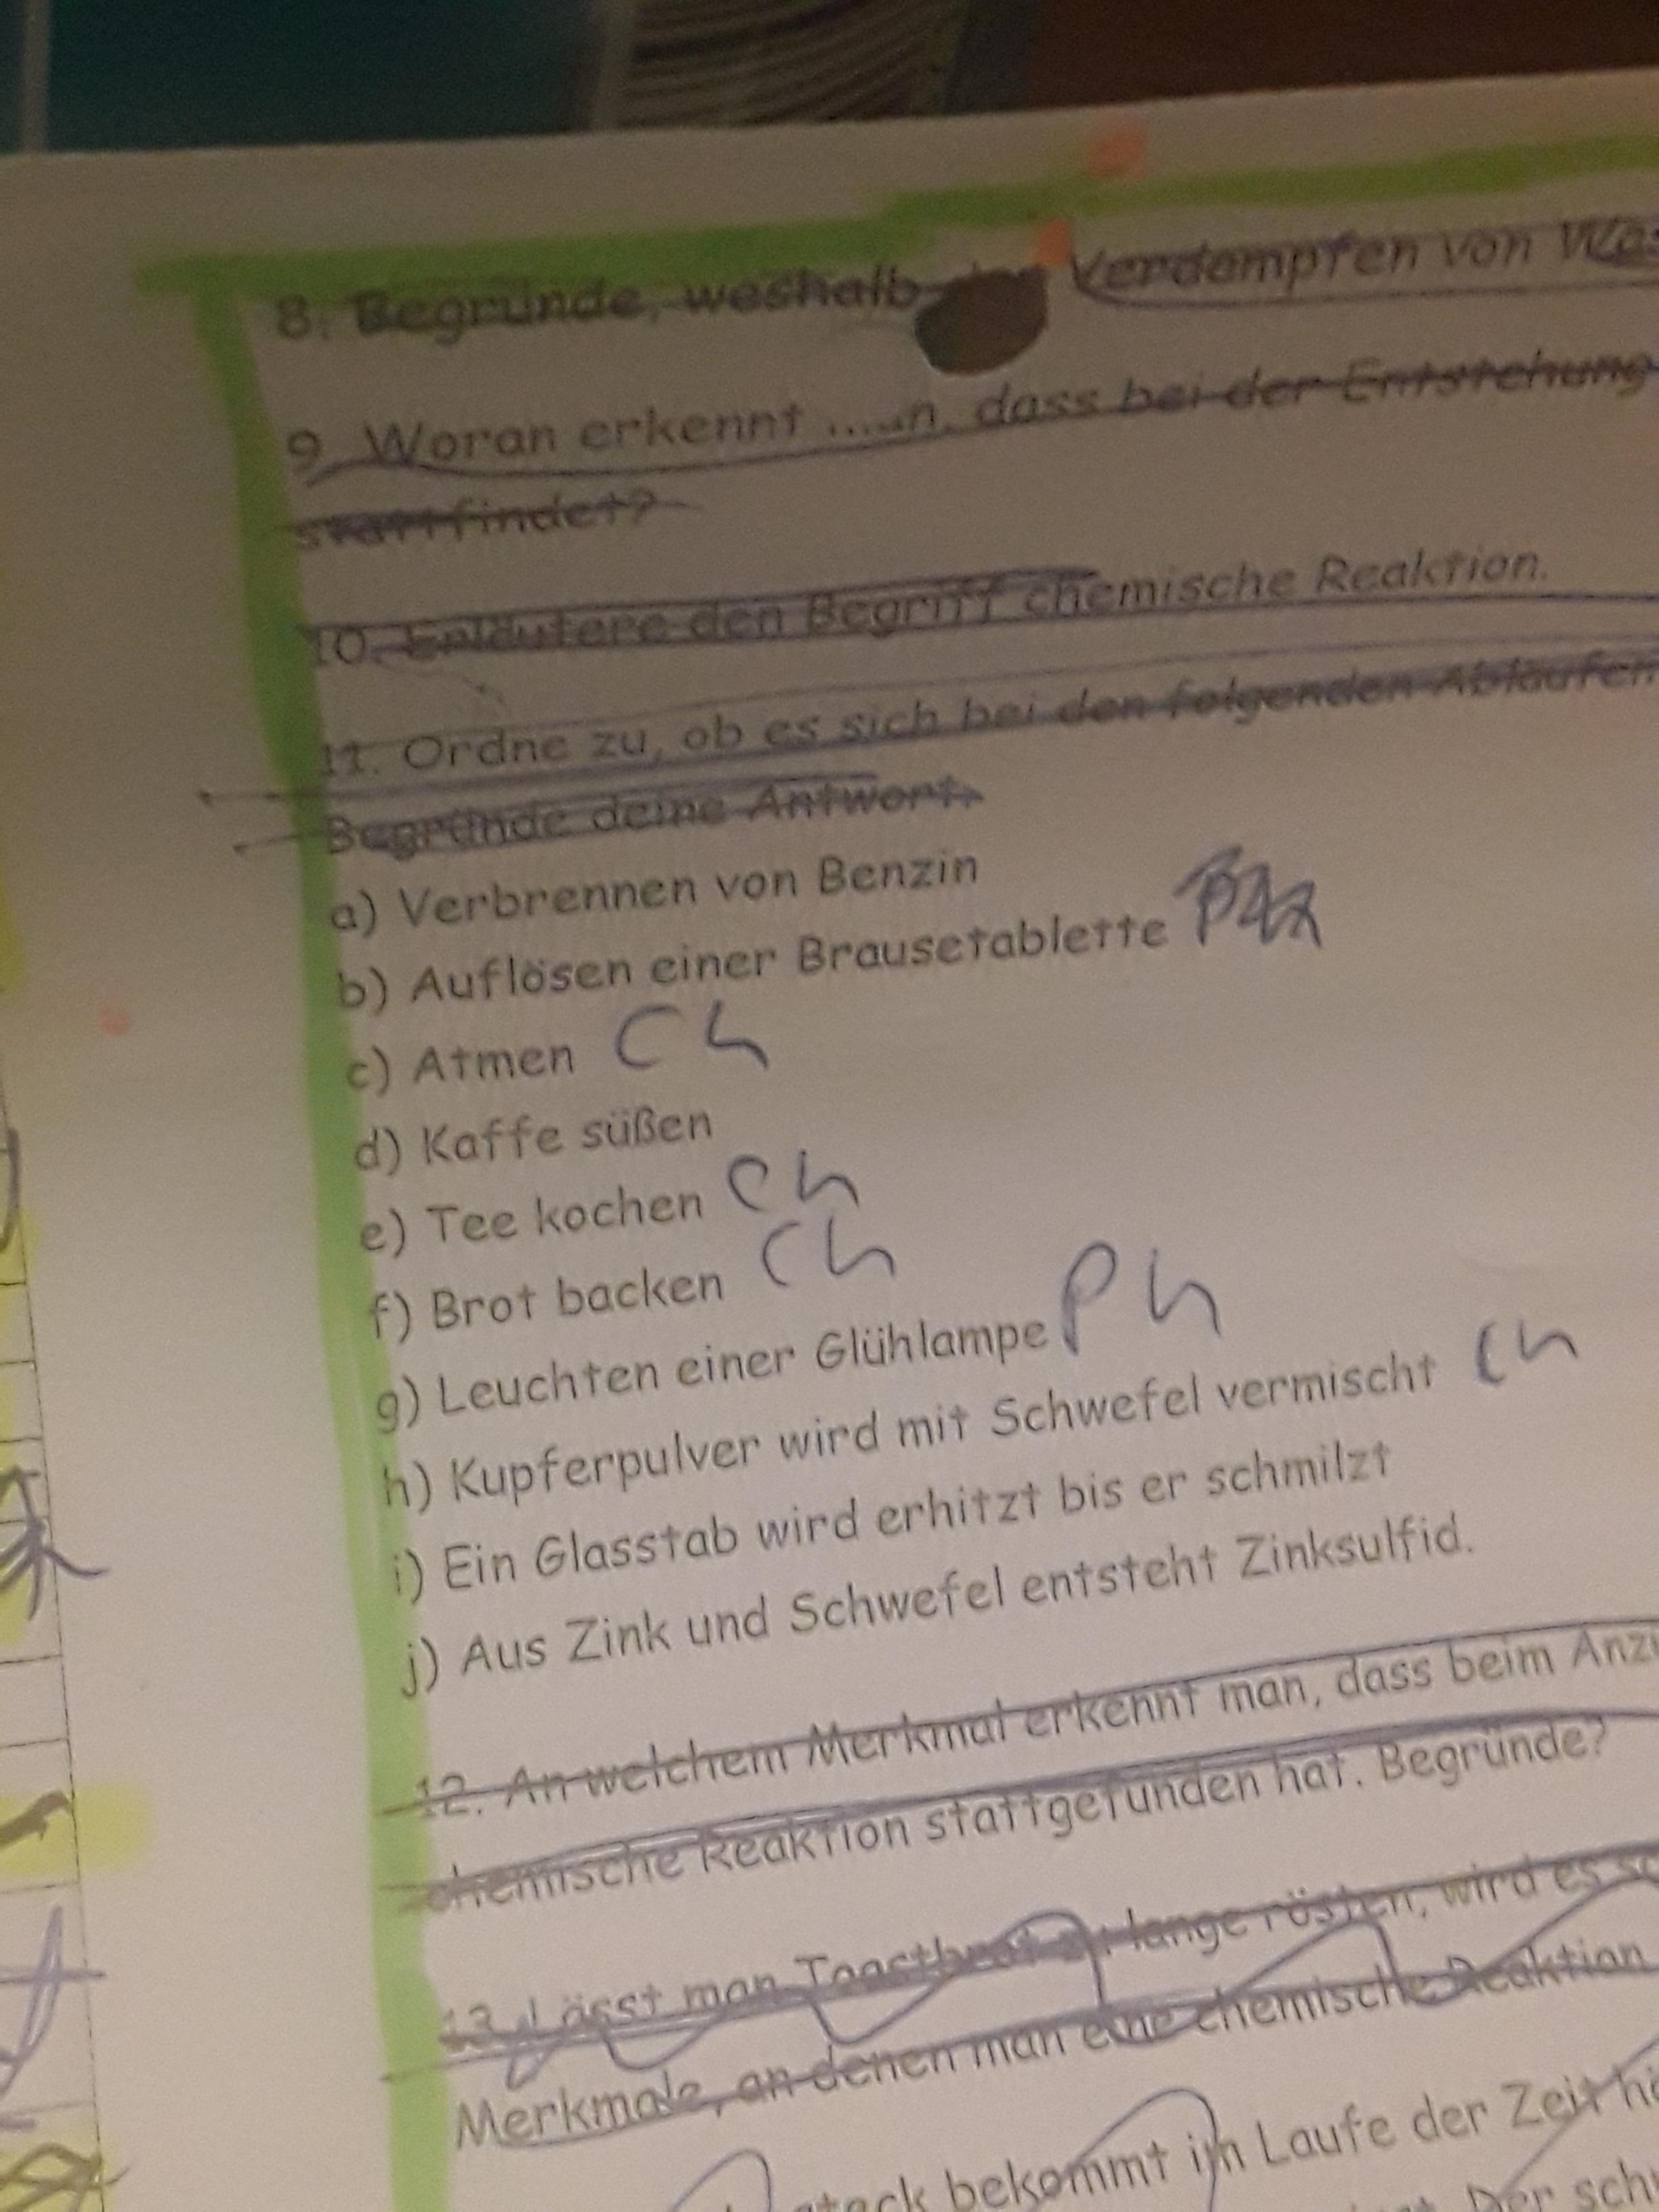 8. Begründe, weshalb Verdampfen von
9. Woran erkennt dass bei der Entstehung
stattfindet?
10. Erläutere den Begriff chemische Reaktion.
11. Ordne zu, ob es sich bei den folgenden Abläufen
Begründe deine Antwort.
a) Verbrennen von Benzin
b) Auflösen einer Brausetablette
c) Atmen Ch
d) Kaffe süßen
e) Tee kochen Ch
f) Brot backen Ch
g) Leuchten einer Glühlampe Ph
h) Kupferpulver wird mit Schwefel vermischt Ch
i) Ein Glasstab wird erhitzt bis er schmilzt
j) Aus Zink und Schwefel entsteht Zinksulfid.
12. An welchem Merkmal erkennt man, dass beim
chemische Reaktion stattgefunden hat. Begründe?
13. Lässt man Toastbrot zu lange rösten, wird es
Merkmale, an denen man eine chemische Reaktion
bekommt im Laufe der Zeit
Der